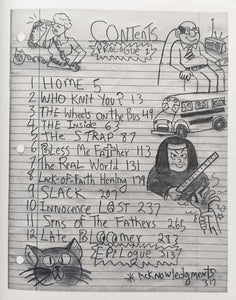 CONTENTS
PROLOGUE 1
1 HOME 5
2 WHO KNIT YOU? 13
3 THE WHEELS ON THE BUS 49
4 THE INSIDE 63
5 THE STRAP 87
6 Bless Me Father 113
7 The Real World 131
8 Lack-of-Faith Healing 179
9 SLACK 207
10 Innocence LOST 237
11 Sins of The Fathers 265
12 Late Bloomer 293
Epilogue 313
* Acknowledgments 317